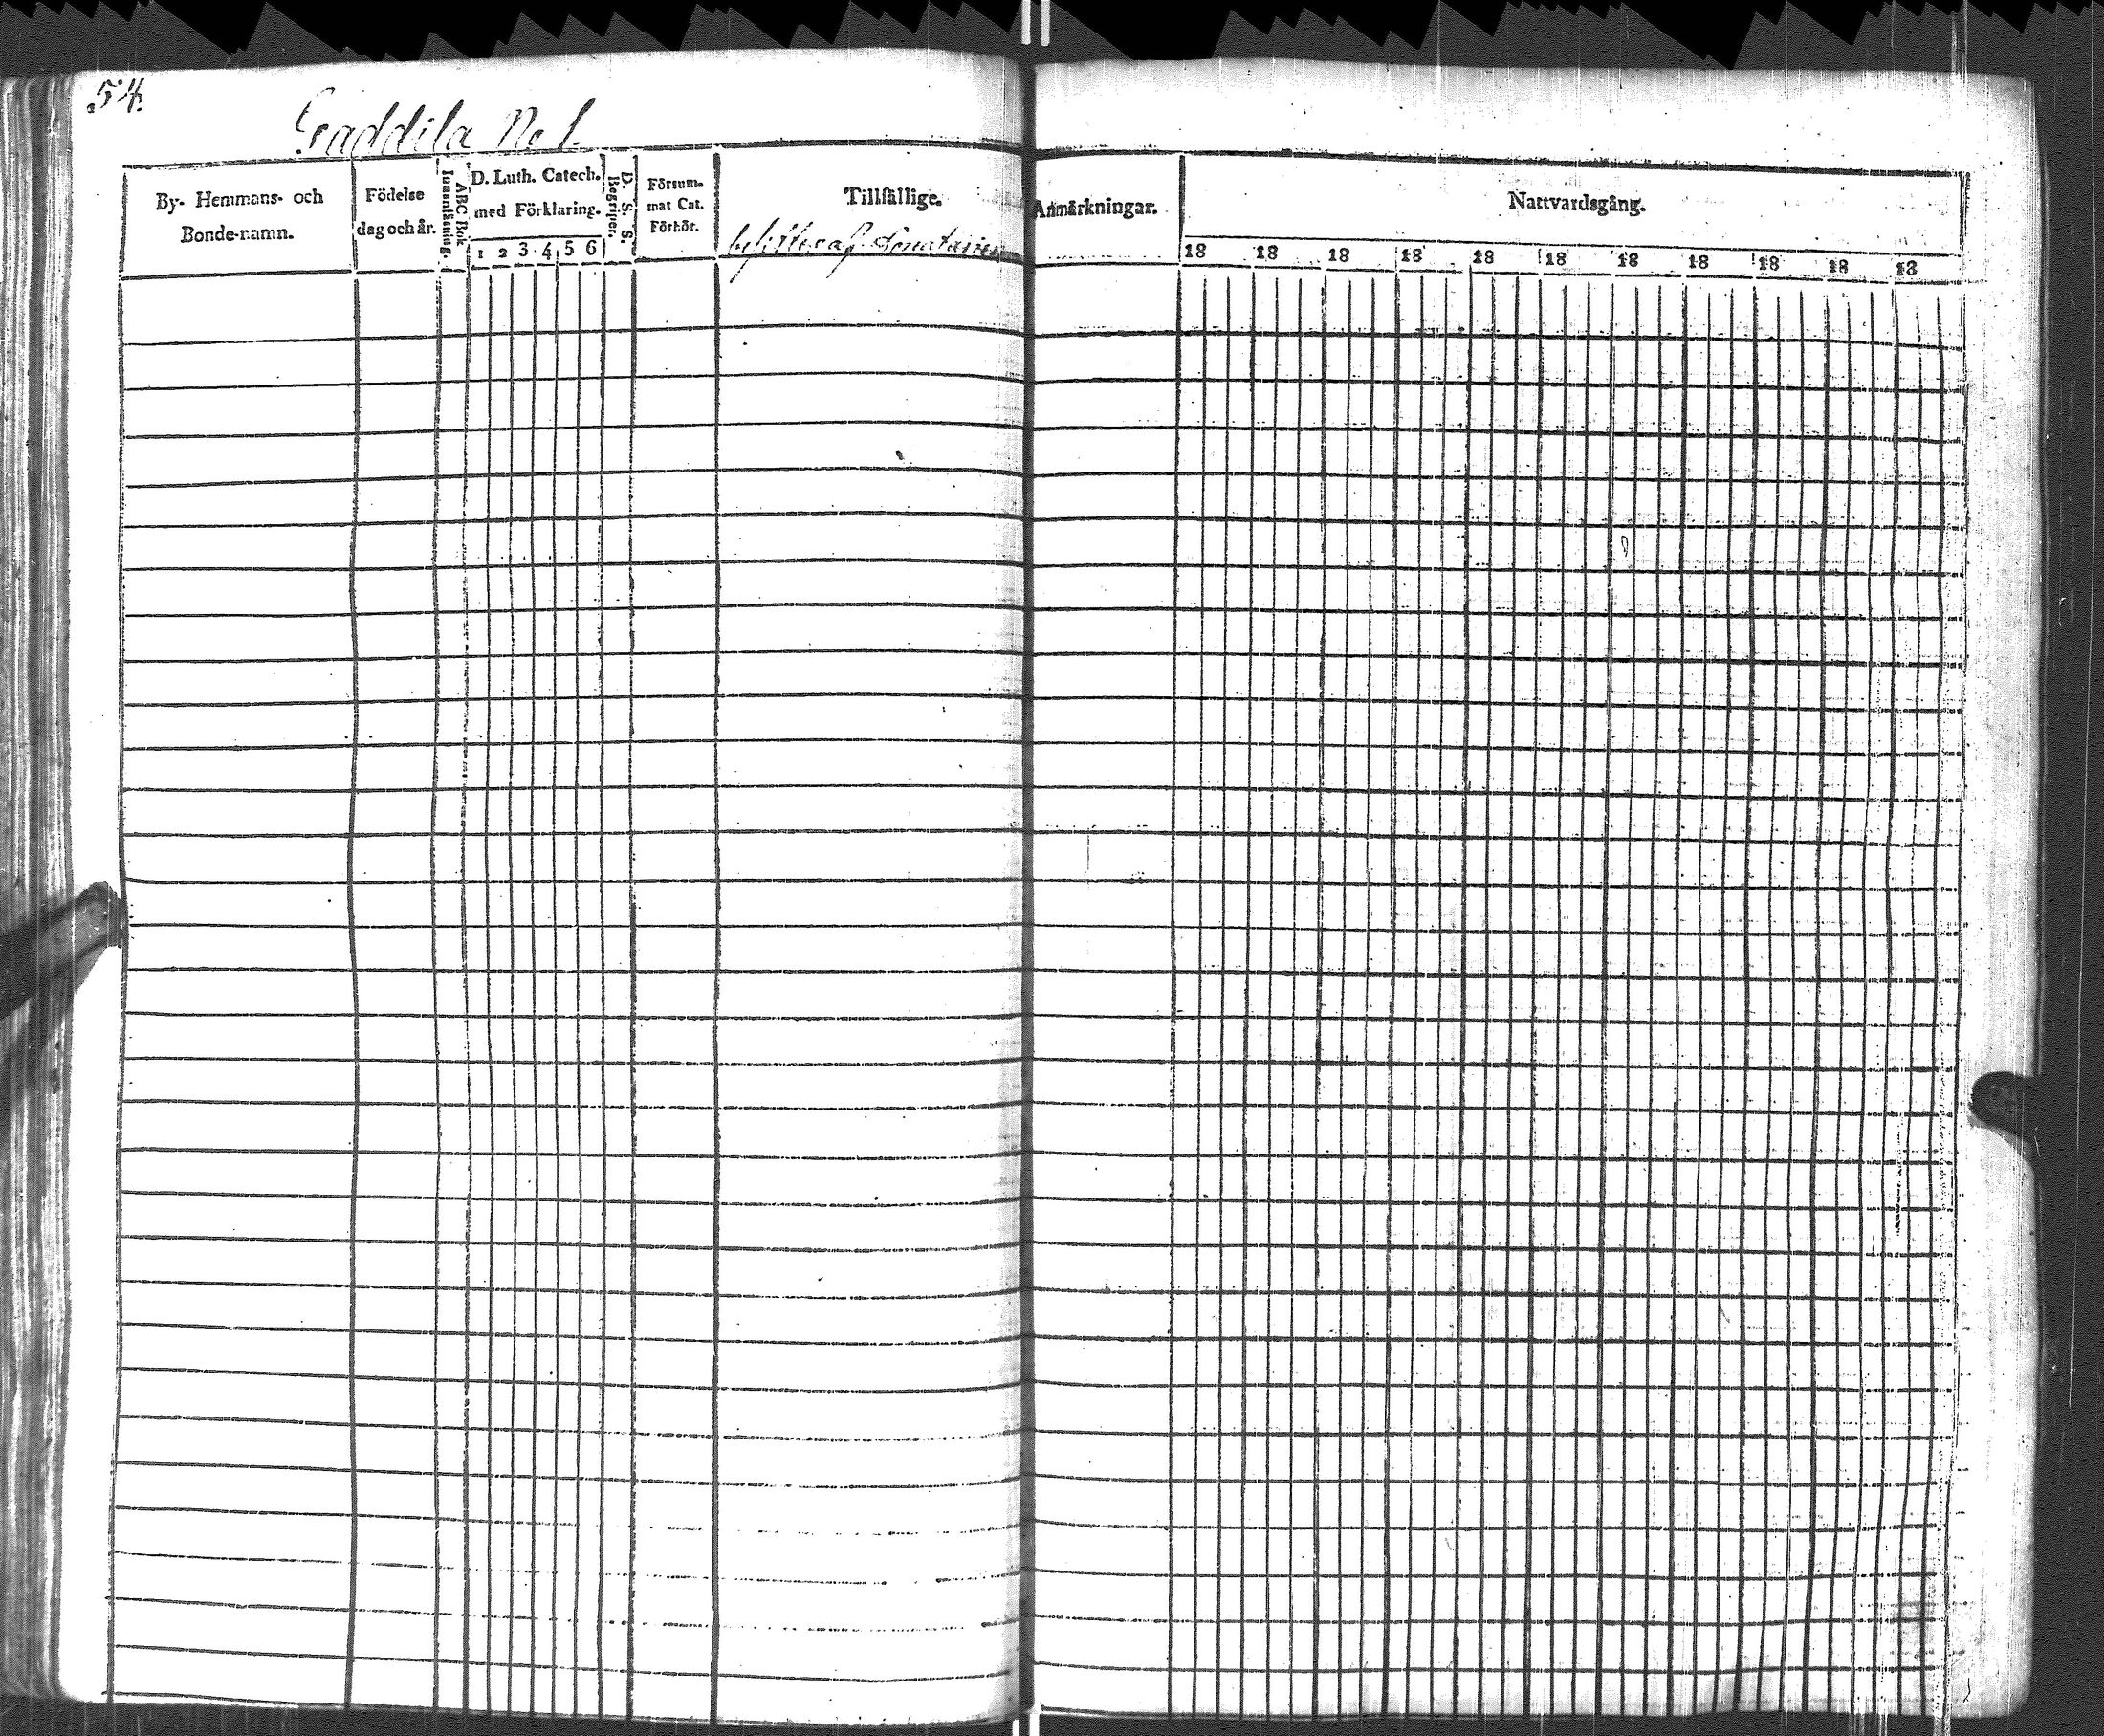 54.
Gaddila No 1.
By- Hemmans- och
Bonde-namn.
Födelse
dag och år.
ABC Bok
Innanläsning.
D. Luth. Catech.
med Förklaring.
1 2 3 4 5 6
D. S. S.
Begriper.
Försum-
mat Cat.
Förhör.
Tillfällige
Anmärkningar.
besittes af
Nattvardsgång.
18 18 18 18 18 18 18 18 18 18 18